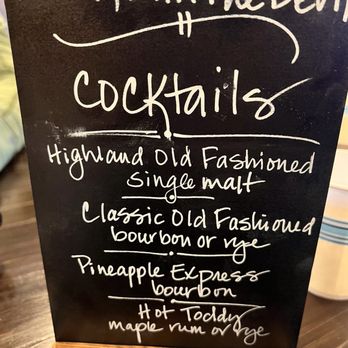 The Devil
Cocktails
Highland Old Fashioned
single malt
Classic Old Fashioned
bourbon or rye
Pineapple Express
bourbon
Hot Toddy
maple rum or rye